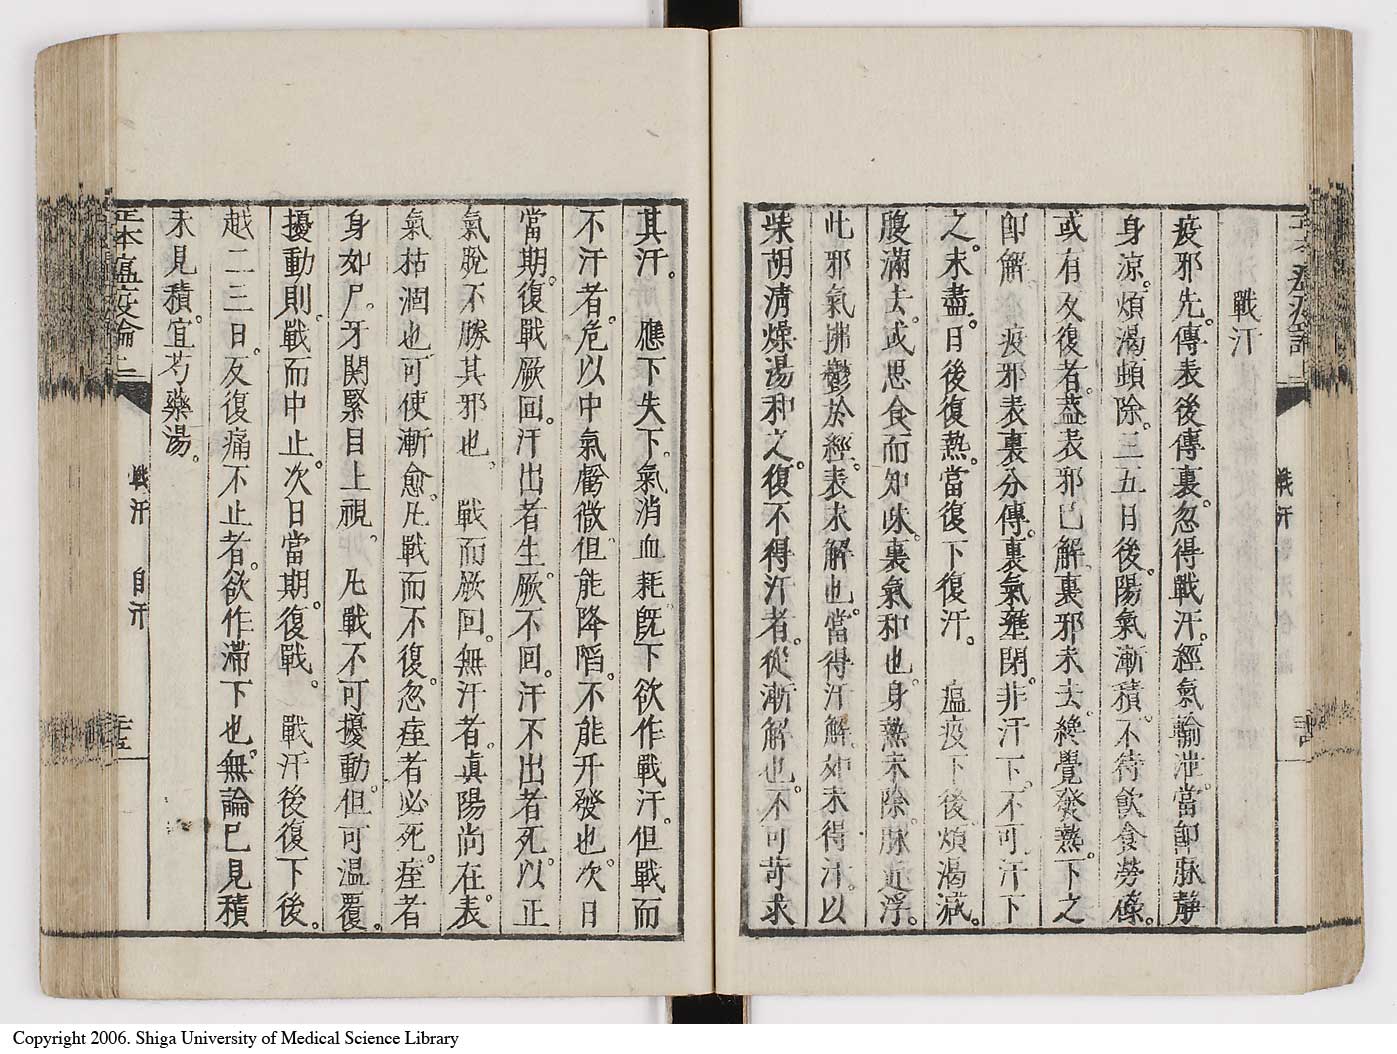 戰汗
疫邪先。傳表後傳裏。忽得戰汗。經氣輸泄。當卽脉靜
身凉。煩渴頓除。三五日後。陽氣漸積。不待飮食勞傷。
或有反復者。葢表邪已解。裏邪未去。纔覺發熱。下之
卽解。　疫邪表裏分傳。裏氣壅閉。非汗下。不可汗下
之。未盡。日後復熱。當復下復汗。　瘟疫下後。煩渴減。
腹滿去。或思食而知味。裏氣和也。身熱未除。脉近浮。
此邪氣拂鬱於經。表未解也。當得汗解。如未得汗。以
柴胡淸燥湯和之。復不得汗者。從漸解也。不可苛求
其汗。　應下失下。氣消血耗。旣下欲作戰汗。但戰而
不汗者。危。以中氣虧微。但能降陷。不能升發也。次日
當期。復戰厥回。汗出者生。厥不回。汗不出者死。以正
氣脫不勝其邪也。　戰而厥回。無汗者。眞陽尙在。表
氣枯涸也。可使漸愈。凡戰而不復。忽痓者必死。痓者
身如尸。牙関緊。目上視。　凡戰不可擾動。但可温覆。
擾動則。戰而中止。次日當期。復戰。　戰汗後復下後。
越二三日。反復痛不止者。欲作滯下也。無論已見積
未見積。宜芍藥湯。
正本瘟疫論 上
戰汗　自汗
Copyright 2006. Shiga University of Medical Science Library